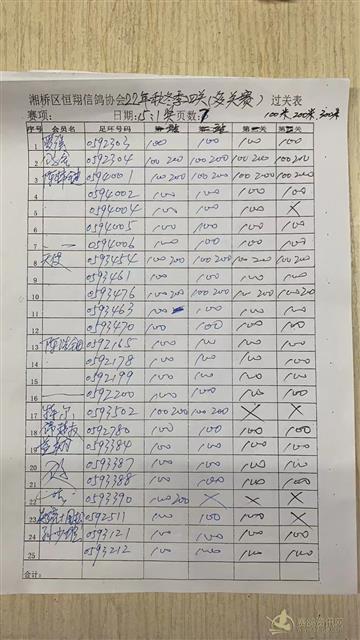 湘桥区恒翔信鸽协会22年秋冬季四关(多关赛)过关表
赛项: 日期: 页数:7 100米,200米,300米
序号 会员名 足环号码 第一关 第二关 第三关 第四关
1 0592303 100 100 100 100
2 0592304 100 200 100 200 100 200 100 200
3 0594001 100 200 100 200 100 200 100 200
4 0594002 100 100 100 100
5 0594004 100 100 100 X
6 0594005 100 100 100 100
7 0594006 100 100 100 100
8 0593454 100 200 100 200 100 200 100 200
9 0593461 100 100 100 100
10 0593476 100 200 100 200 100 200 100 200
11 0593463 100 100 100 100
12 0593470 100 100 100 100
13 0592165 100 100 100 100
14 0592178 100 100 100 100
15 0592199 100 100 100 100
16 0592200 100 100 100 100
17 0593502 100 200 100 200 X X
18 0592780 100 100 100 100
19 0593384 100 100 100 100
20 0593387 100 100 100 100
21 0593388 100 100 100 100
22 0593390 100 200 X X X
23 0592511 100 100 100 X
24 0593121 100 100 100 100
25 0593212 100 100 100 100
合计:
赛鸽资讯网